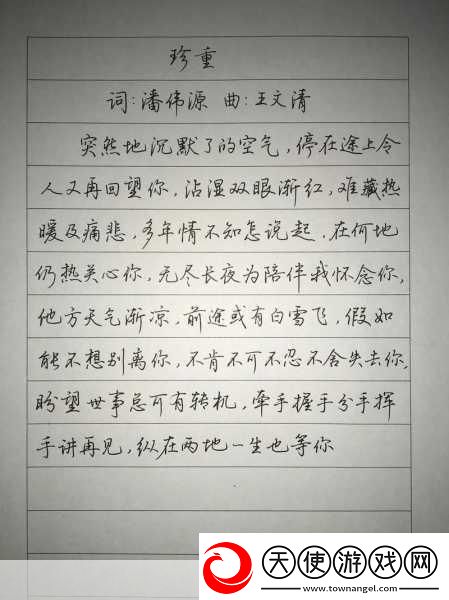 珍重
词:潘伟源 曲:王文清
突然地沉默了的空气,停在途上令
人又再回望你,沾湿双眼渐红,难藏热
暖及痛悲,多年情不知怎说起,在何地
仍热关心你,无尽长夜为陪伴我怀念你,
他方天气渐凉,前途或有白雪飞,假如
能不想别离你,不肯不可不忍不舍失去你,
盼望世事总可有转机,牵手握手分手挥
手讲再见,纵在两地一生也等你
天使游戏网
www.townangel.com